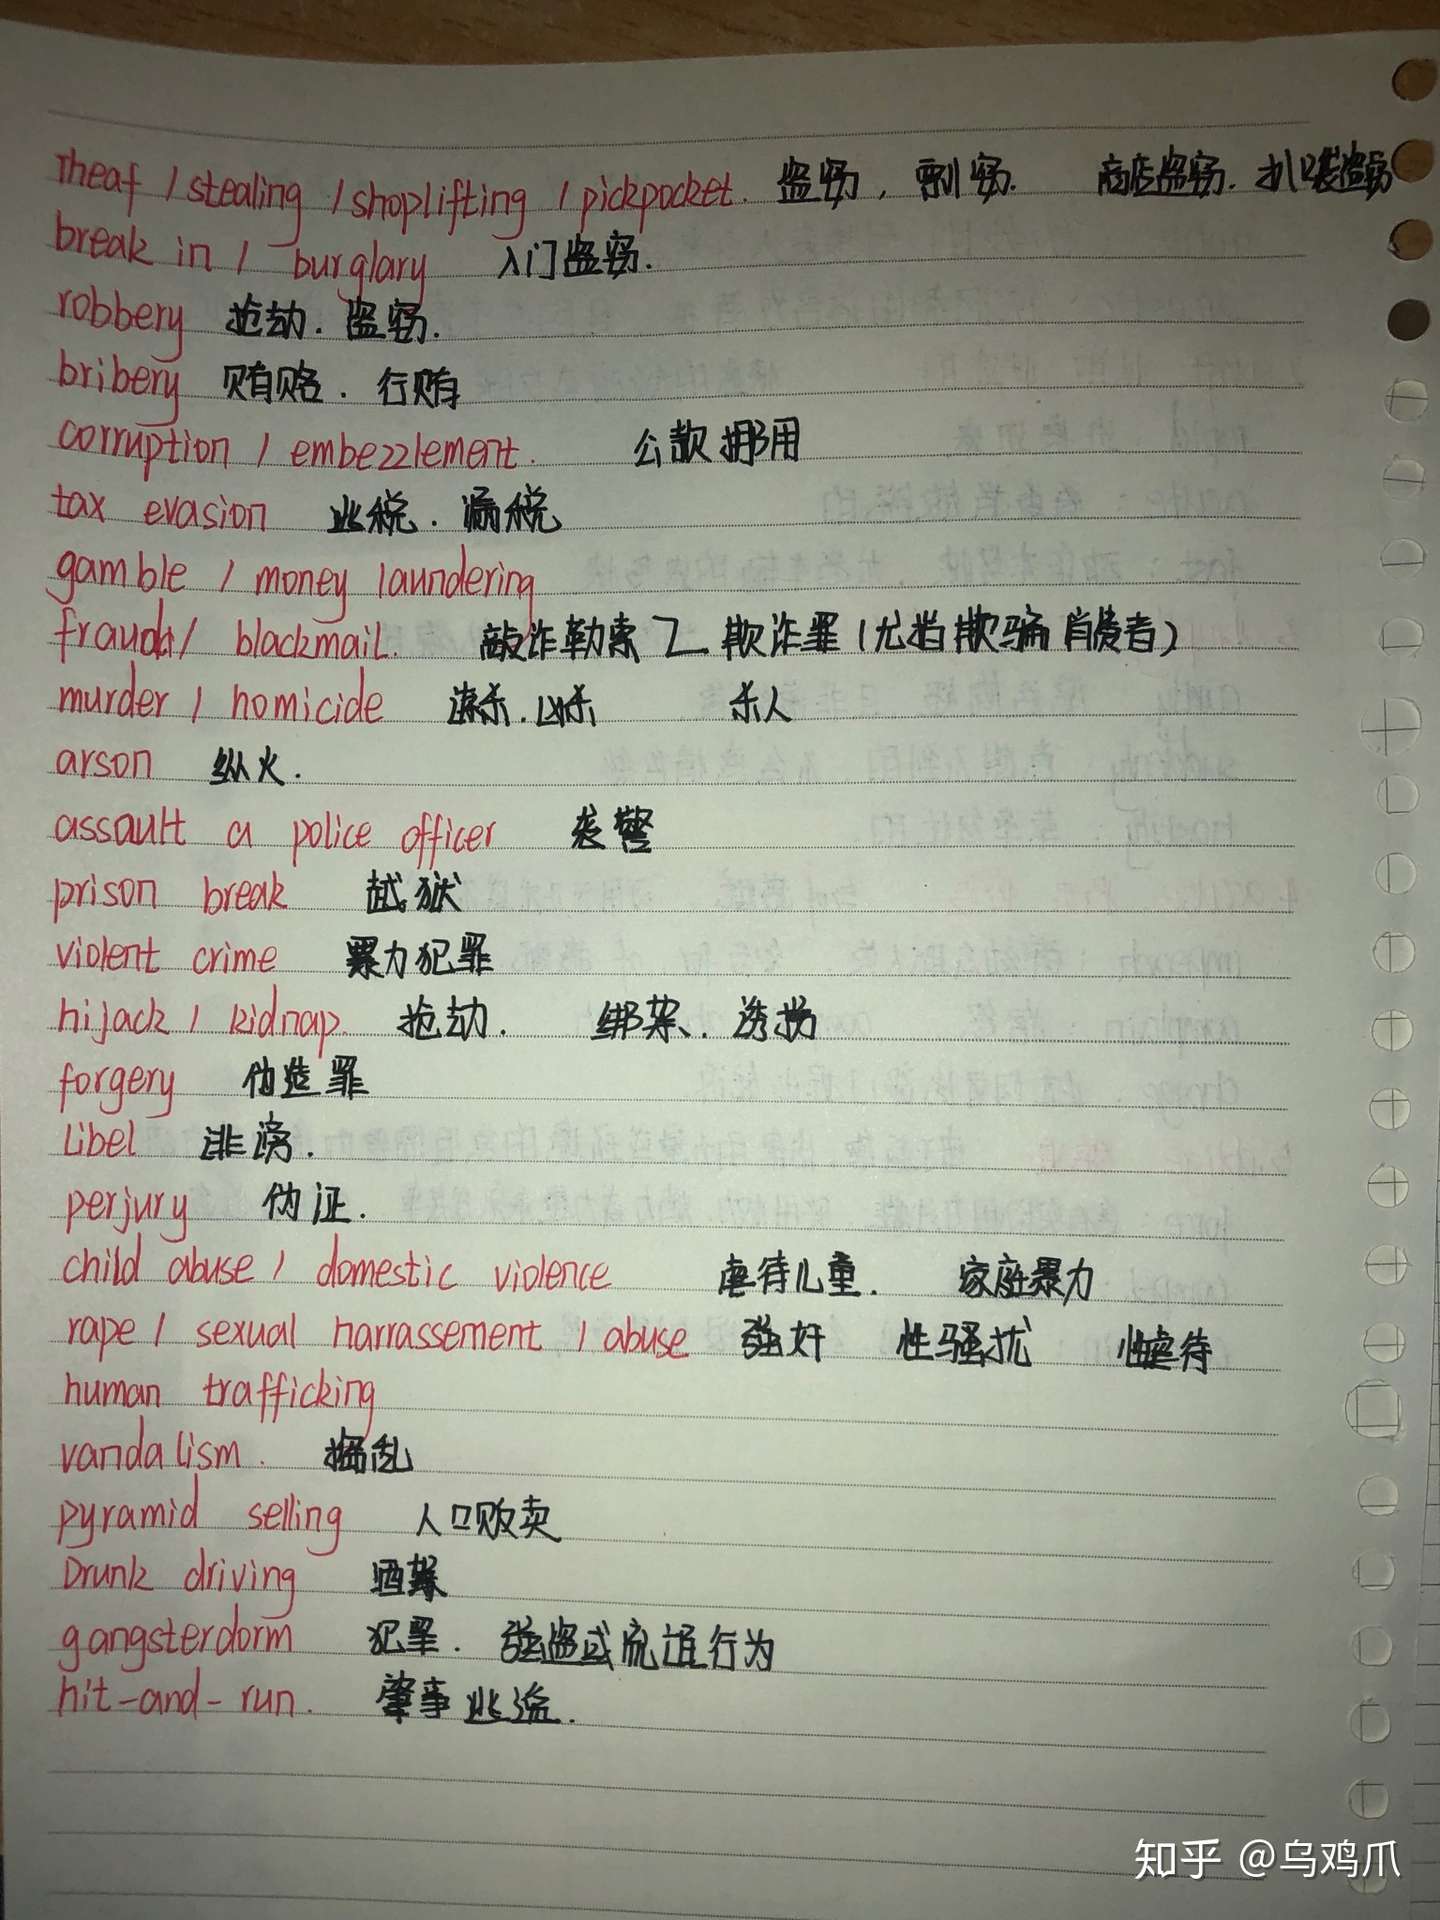 theaf / stealing / shoplifting / pickpocket. 盗窃, 剽窃. 商店盗窃. 扒口袋盗窃
break in / burglary 入门盗窃.
robbery 抢劫. 盗窃.
bribery 贿赂. 行贿
corruption / embezzlement. 公款挪用
tax evasion 逃税. 漏税
gamble / money laundering
fraud / blackmail. 敲诈勒索 乙 欺诈罪(尤指欺骗消费者)
murder / homicide 谋杀. 凶杀 杀人
arson 纵火.
assault a police officer 袭警
prison break 越狱
violent crime 暴力犯罪
hijack / kidnap. 抢劫. 绑架. 诱拐
forgery 伪造罪
Libel 诽谤.
perjury 伪证.
child abuse / domestic violence 虐待儿童. 家庭暴力
rape / sexual harrassement / abuse 强奸 性骚扰 性虐待
human trafficking
vandalism. 捣乱
pyramid selling 人口贩卖
Drunk driving 酒驾
gangsterdorm 犯罪. 强盗或流氓行为
hit-and-run. 肇事逃逸.
知乎 @乌鸡爪